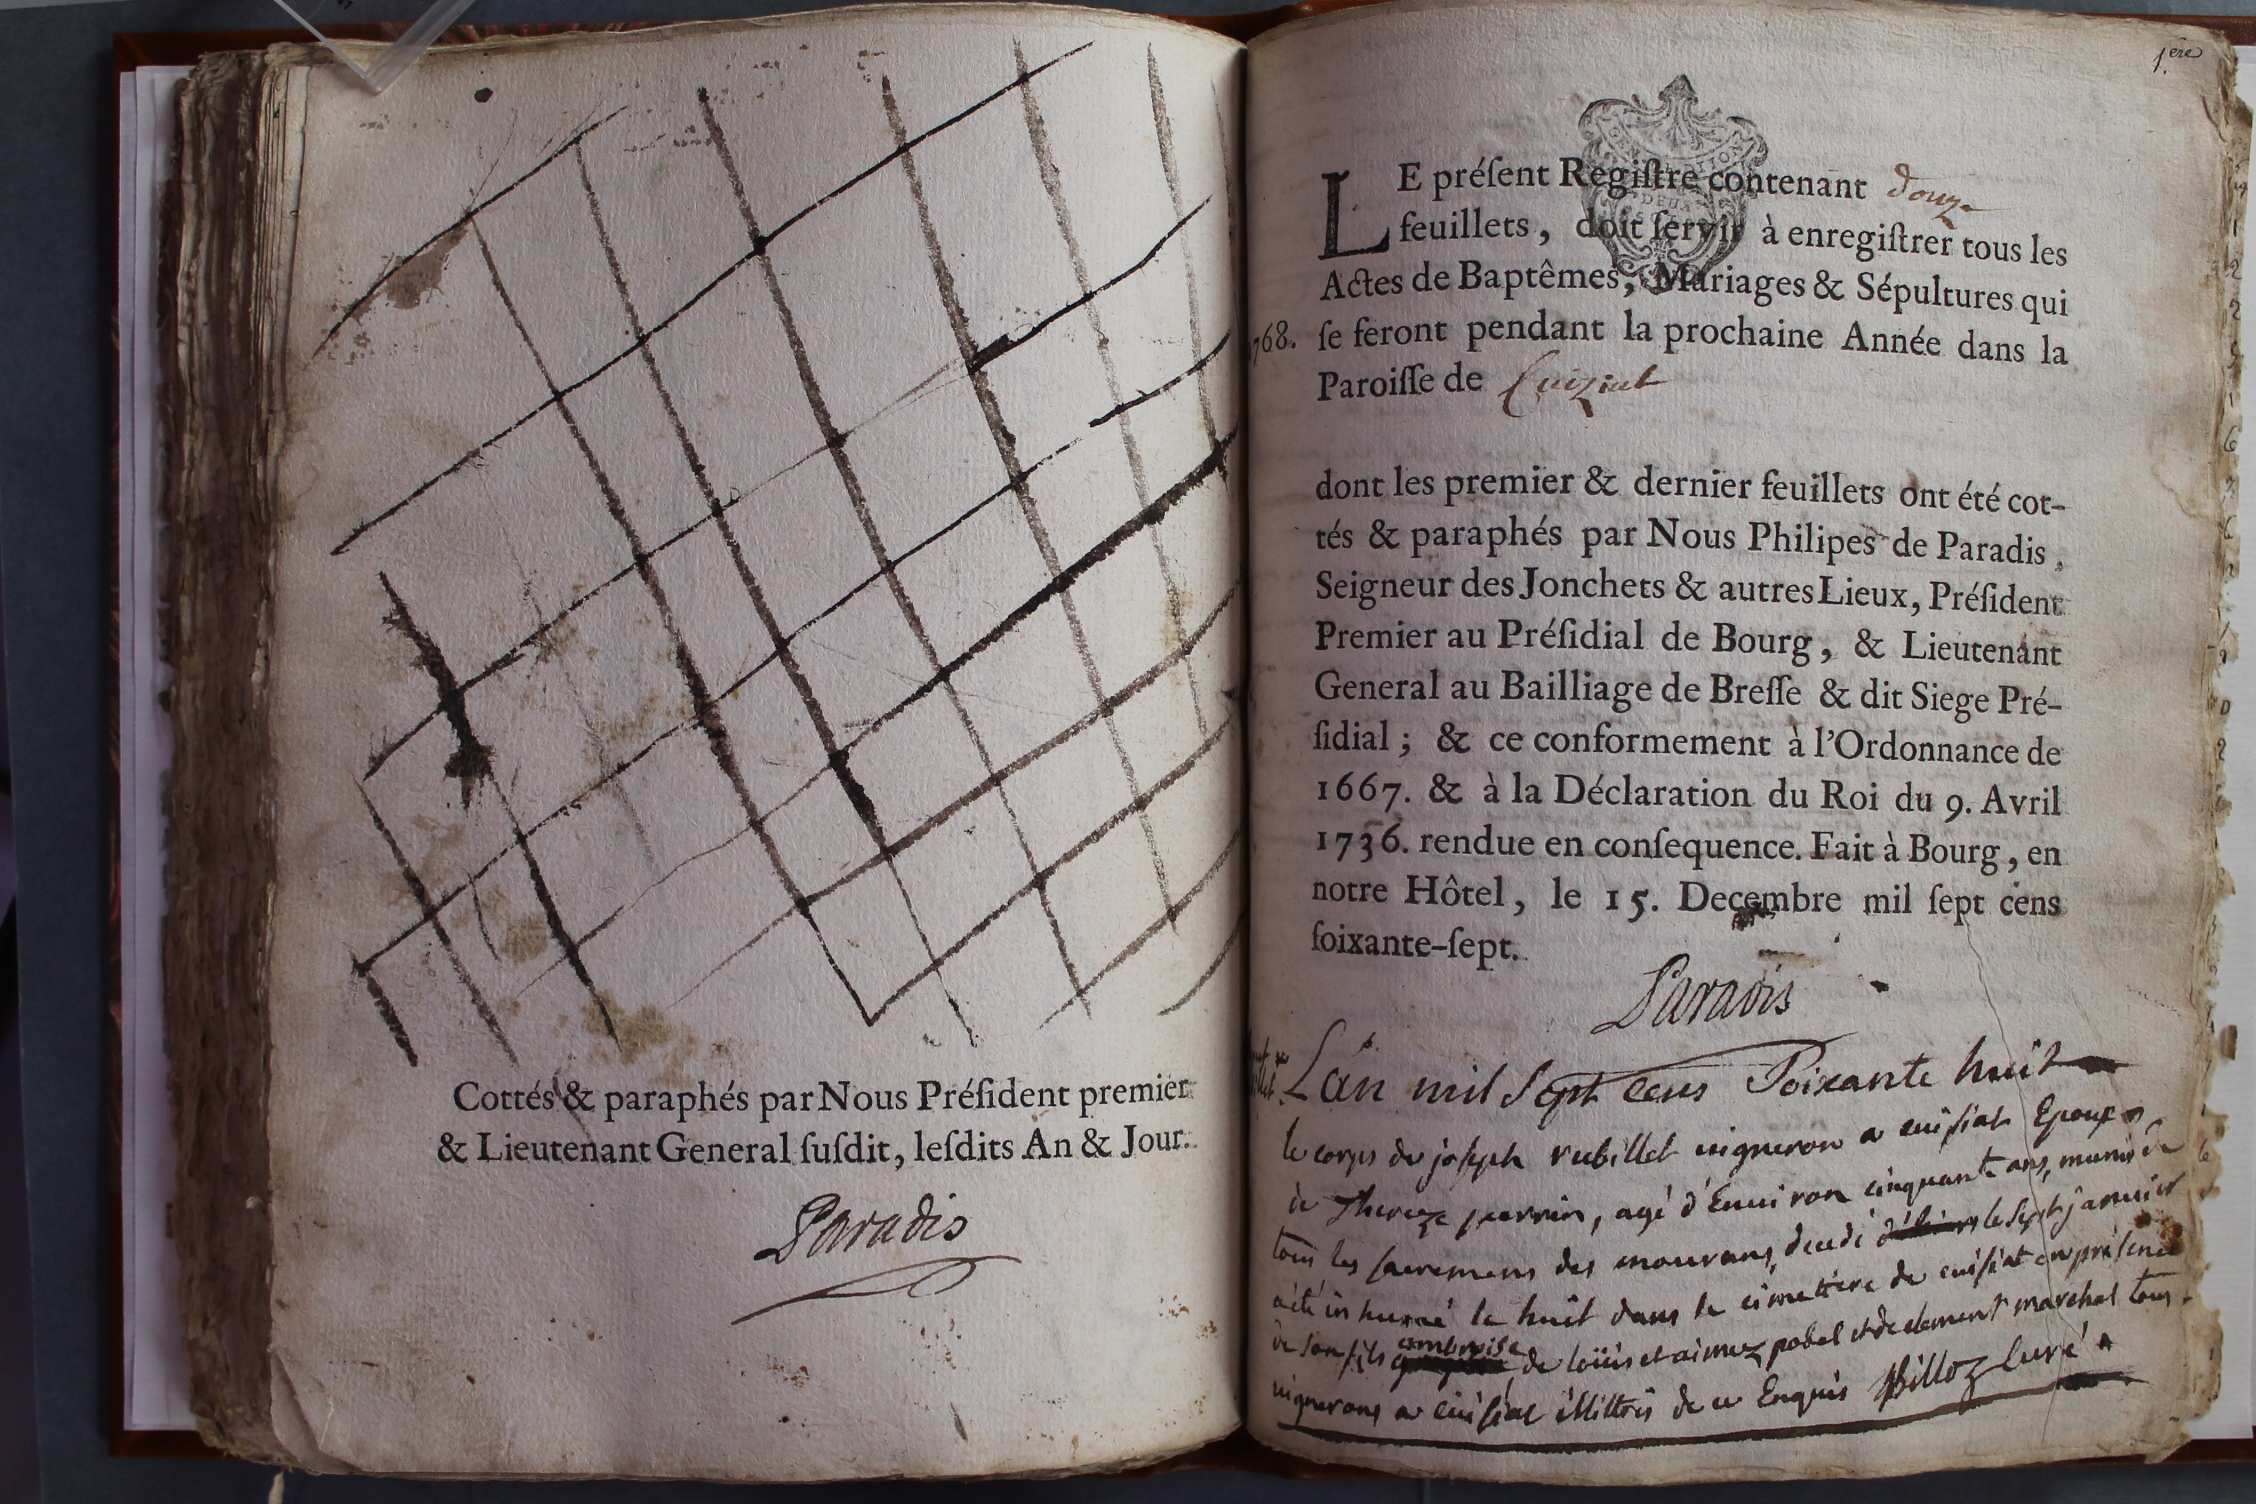 Cottés & paraphés par Nous Préſident premier
& Lieutenant General ſuſdit, leſdits An & Jour.
Paradis
1.ere
LE préſent Regiſtre contenant douze
feuillets, doit ſervir à enregiſtrer tous les
Actes de Baptêmes, Mariages & Sépultures qui
1768. ſe feront pendant la prochaine Année dans la
Paroiſſe de Cuiziat
dont les premier & dernier feuillets ont été cot-
tés & paraphés par Nous Philipes de Paradis,
Seigneur des Jonchets & autres Lieux, Préſident
Premier au Préſidial de Bourg, & Lieutenant
General au Bailliage de Breſſe & dit Siege Pré-
ſidial; & ce conformement à l'Ordonnance de
1667. & à la Déclaration du Roi du 9. Avril
1736. rendue en conſequence. Fait à Bourg, en
notre Hôtel, le 15. Decembre mil ſept cens
ſoixante-ſept.
Paradis
L'an mil Sept Cens Soixante huit
le corps de joseph rubillet vigneron a cuisiat Epoux
de Thereze perrin, agé d'Environ cinquante ans, munis de
tous les sacremens des mourans, decedé le sept janvier
a été inhumé le huit dans le cimettiere de cuisiat en présence
de son fils ambroise de loüis et aimez pobel et de clement marchal tous
vignerons a cuisiat illittrés de ce Enquis Billoz Curé